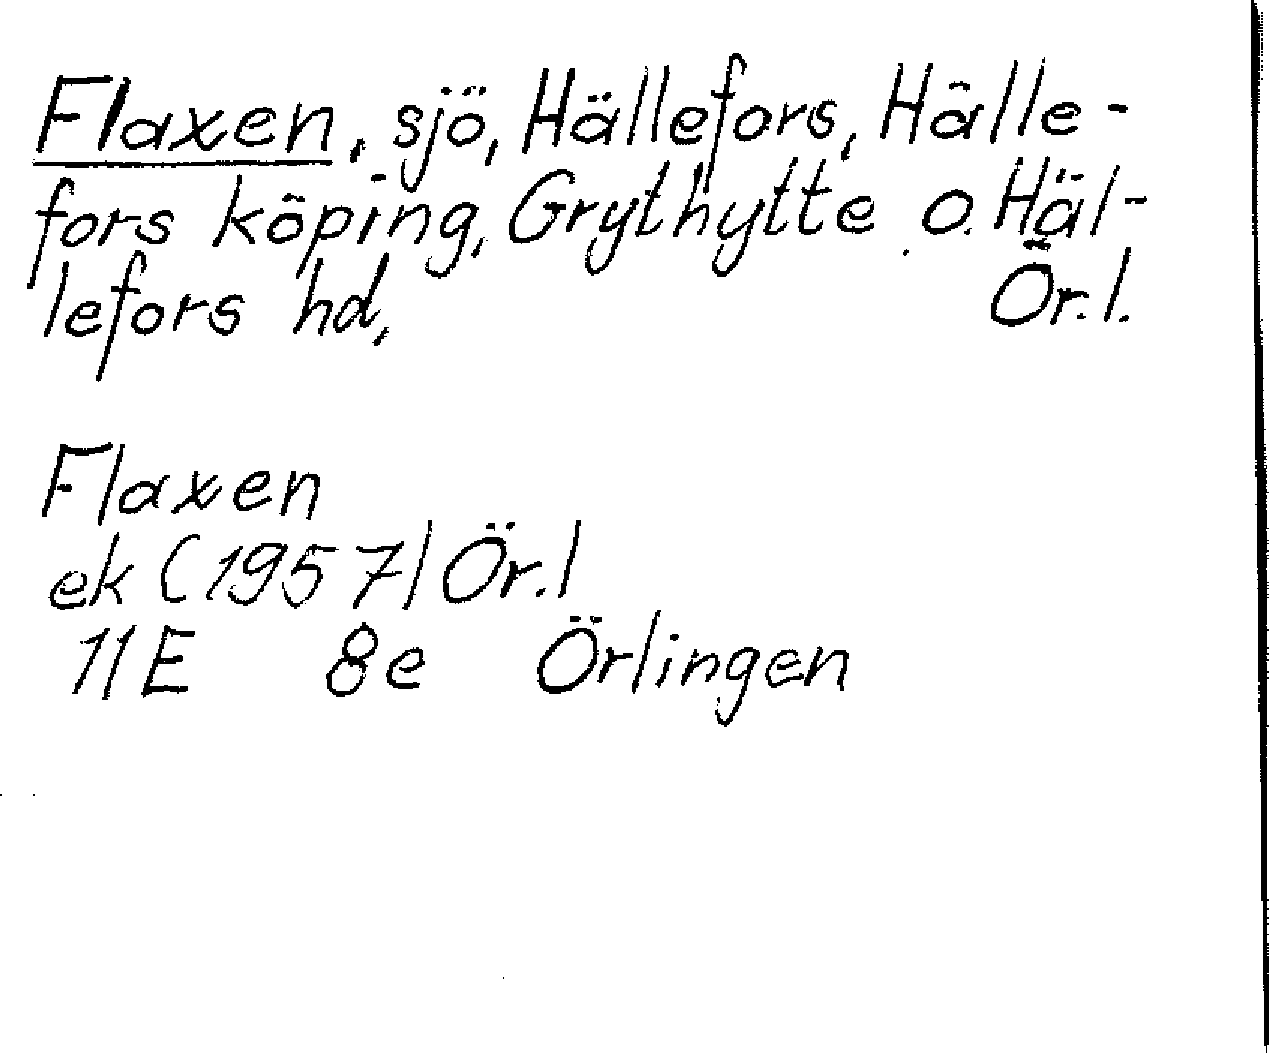 Flaxen, sjö, Hällefors, Hälle-
fors köping, Grythytte o. Häl-
lefors hd, Ör.l.
Flaxen
ek (1957) Ör.l
11E 8e Örlingen